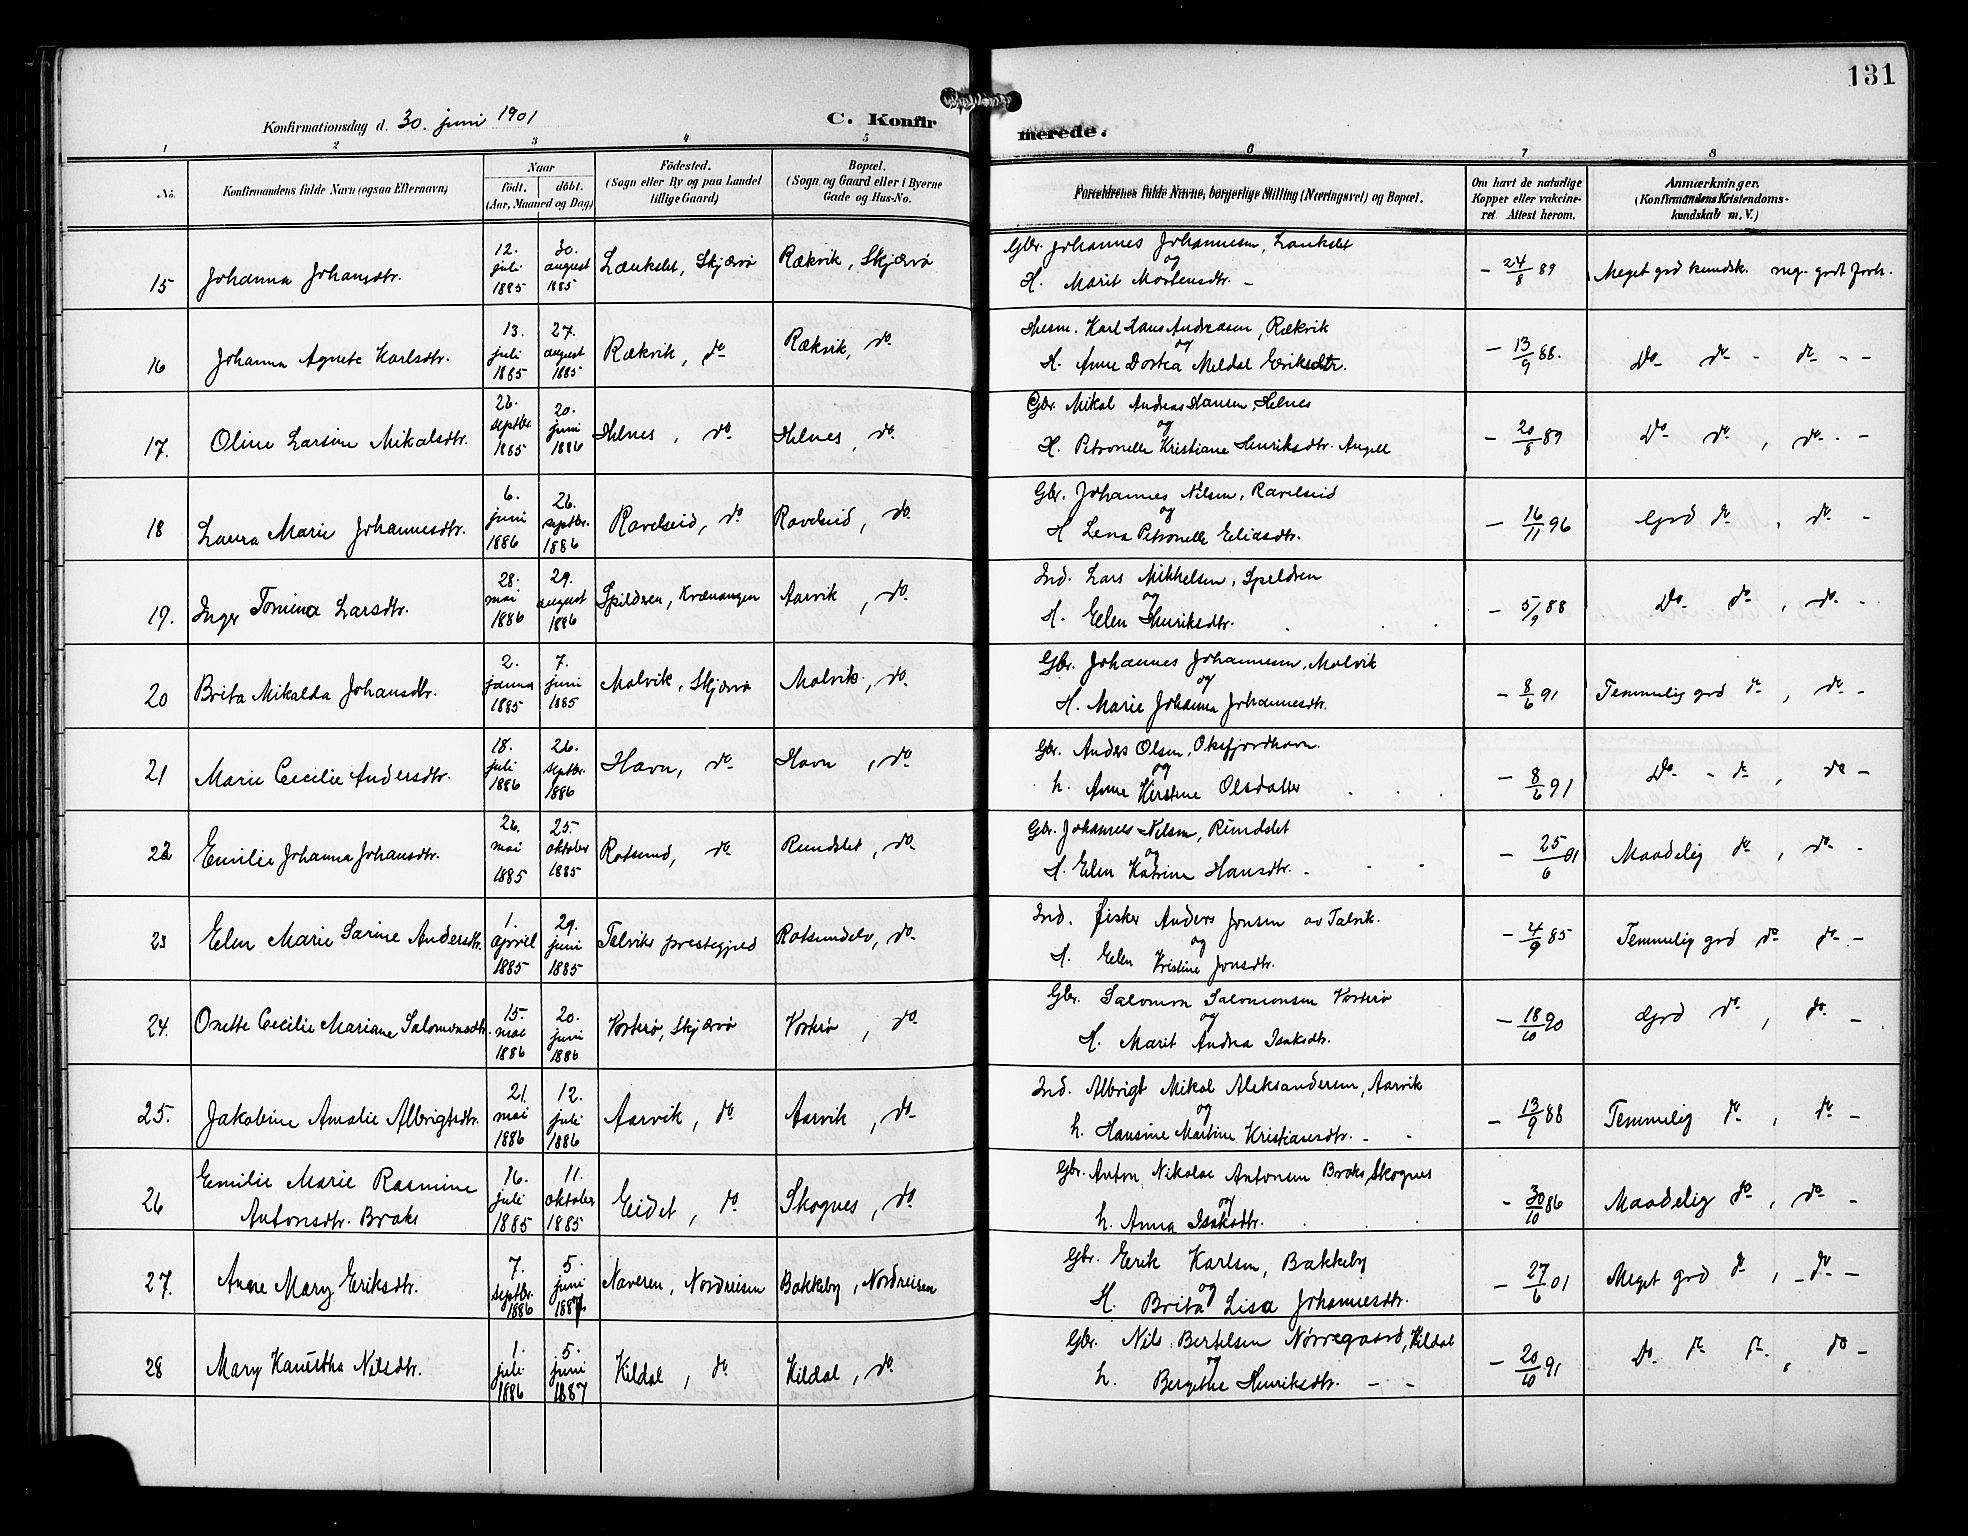 131
Konfirmationsdag d. 30. juni 1901
C. Konfirmerede.
1 2 3 4 5 6 7 8
No. | Konfirmandens fulde Navn (ogsaa Efternavn) | Naar födt. döbt. (Aar, Maaned og Dag) | Födested. (Sogn eller By og paa Landet tillige Gaard) | Bopæl. (Sogn og Gaard eller i Byerne Gade og Hus-No. | Forældrenes fulde Navne, borgerlige Stilling (Næringsvei) og Bopæl. | Om havt de naturlige Kopper eller vakcineret. Attest herom. | Anmærkninger. (Konfirmandens Kristendomskundskab m. V.)
15 | Johanna Johansdtr. | 12. juli 1885 | 30. august 1885 | Lankslet, Skjærvø | Rækvik, Skjærvø | Gbr. Johannes Johannesen, Lankslet og H. Marit Mortensdtr. - | - 24/8 89 | Meget god kundsk. meg. godt forh.
16 | Johanna Agnete Karlsdtr. | 13. juli 1885 | 27. august 1885 | Rækvik, do | Rækvik, do | Husm. Karl Hans Andreasen, Rækvik og H. Anne Dortea Meldal Eriksdtr. | - 13/9 88. | Do do - do - -
17. | Oline Larsine Mikalsdtr. | 26. septbr. 1885 | 20. juni 1886 | Helnes, do | Helnes, do | Gbr. Mikal Andreas Hansen, Helnes og H. Petronelle Kristiane Henriksdtr. Angell | - 20/8 89 | Do do, do - -
18 | Laura Marie Johannesdtr. | 6. juni 1886 | 26. septbr. 1886 | Ravelseid, do | Ravelseid, do | Gbr. Johannes Nilsen, Ravelseid og H Lena Petronelle Eliasdtr. | - 16/11 96 | God do, do -
19. | Inger Tomina Larsdtr. | 28. mai 1886 | 29. august 1886 | Spildren, Kvænangen | Aarvik, do | Ind. Lars Mikkelsen, Speldren og H. Elen Henriksdtr. | - 5/9 88 | Do do, do -
20 | Brita Mikalda Johansdtr. | 2. januar 1885 | 7. juni 1885 | Malvik, Skjærvø | Malvik, do | Gbr. Johannes Johannesen, Malvik og H. Marie Johanna Johannesdtr. | - 8/6 91 | Temmelig god do, do -
21 | Marie Cecilie Andersdtr. | 18. juli 1886 | 26. septbr. 1886 | Havn, do | Havn, do | Gbr. Anders Olsen, Oksfjordhavn. og h. Anne Kirstine Olsdatter | - 8/6 91 | Do - do, do -
22 | Emilie Johanna Johansdtr. | 26. mai 1885 | 25. oktober 1885 | Rotsund, do | Reindslet, do | Gbr. Johannes Nilsen, Reindslet og H. Elen Katrine Hansdtr. - | - 25/6 01 | Maadelig do, do -
23 | Elen Marie Sarine Andersdtr. | 1. april 1885 | 29. juni 1885 | Talviks prestegjeld | Rotsundelv, do | Ind. fisker Anders Jonsen av Talvik. og H. Elen Kristine Jonsdtr. | - 4/9 85 | Temmelig god do do -
24. | Onette Cecilie Mariane Salomonsdtr. | 15. mai 1886 | 20. juni 1886 | Vorterø, Skjærvø | Vorterø, do | Gbr. Salomon Salomonsen Vorterø og H. Marit Andrea Isaksdtr. | - 18/10 90 | God do, do -
25. | Jakobine Amalie Albrigtsdtr. | 21. mai 1886 | 12. juli 1886 | Aarvik, do | Aarvik, do | Ind. Albrigt Mikal Aleksandersen, Aarvik og h. Hansine Martine Kristiansdtr. - | - 13/9 88 | Temmelig do, do -
26 | Emilie Marie Rasmine Antonsdtr. Braks | 16. juli 1885 | 11. oktober 1885 | Eidet, do | Skognes, do | Gbr. Anton Nikolai Antonsen Braks, Skognes og h. Anna Isaksdtr. | - 30/10 86 | Maadelig do, do -
27. | Anne Mary Eriksdtr. | 7. septbr. 1886 | 5. juni 1887 | Naveren, Nordreisen | Bakkeby, Nordreisen | Gbr. Erik Karlsen, Bakkeby og H. Brita Lisa Johannesdtr. | - 27/6 01 | Meget god do, - do -
28 | Mary Kanutha Nilsdtr. | 1. juli 1886 | 5. juni 1887 | Kildal, do | Kildal, do | Gbr. Nils Bertelsen Nørregaard, Kildal og h. Bergethe Henriksdtr. - - | - 20/10 91 | Do do do, do -